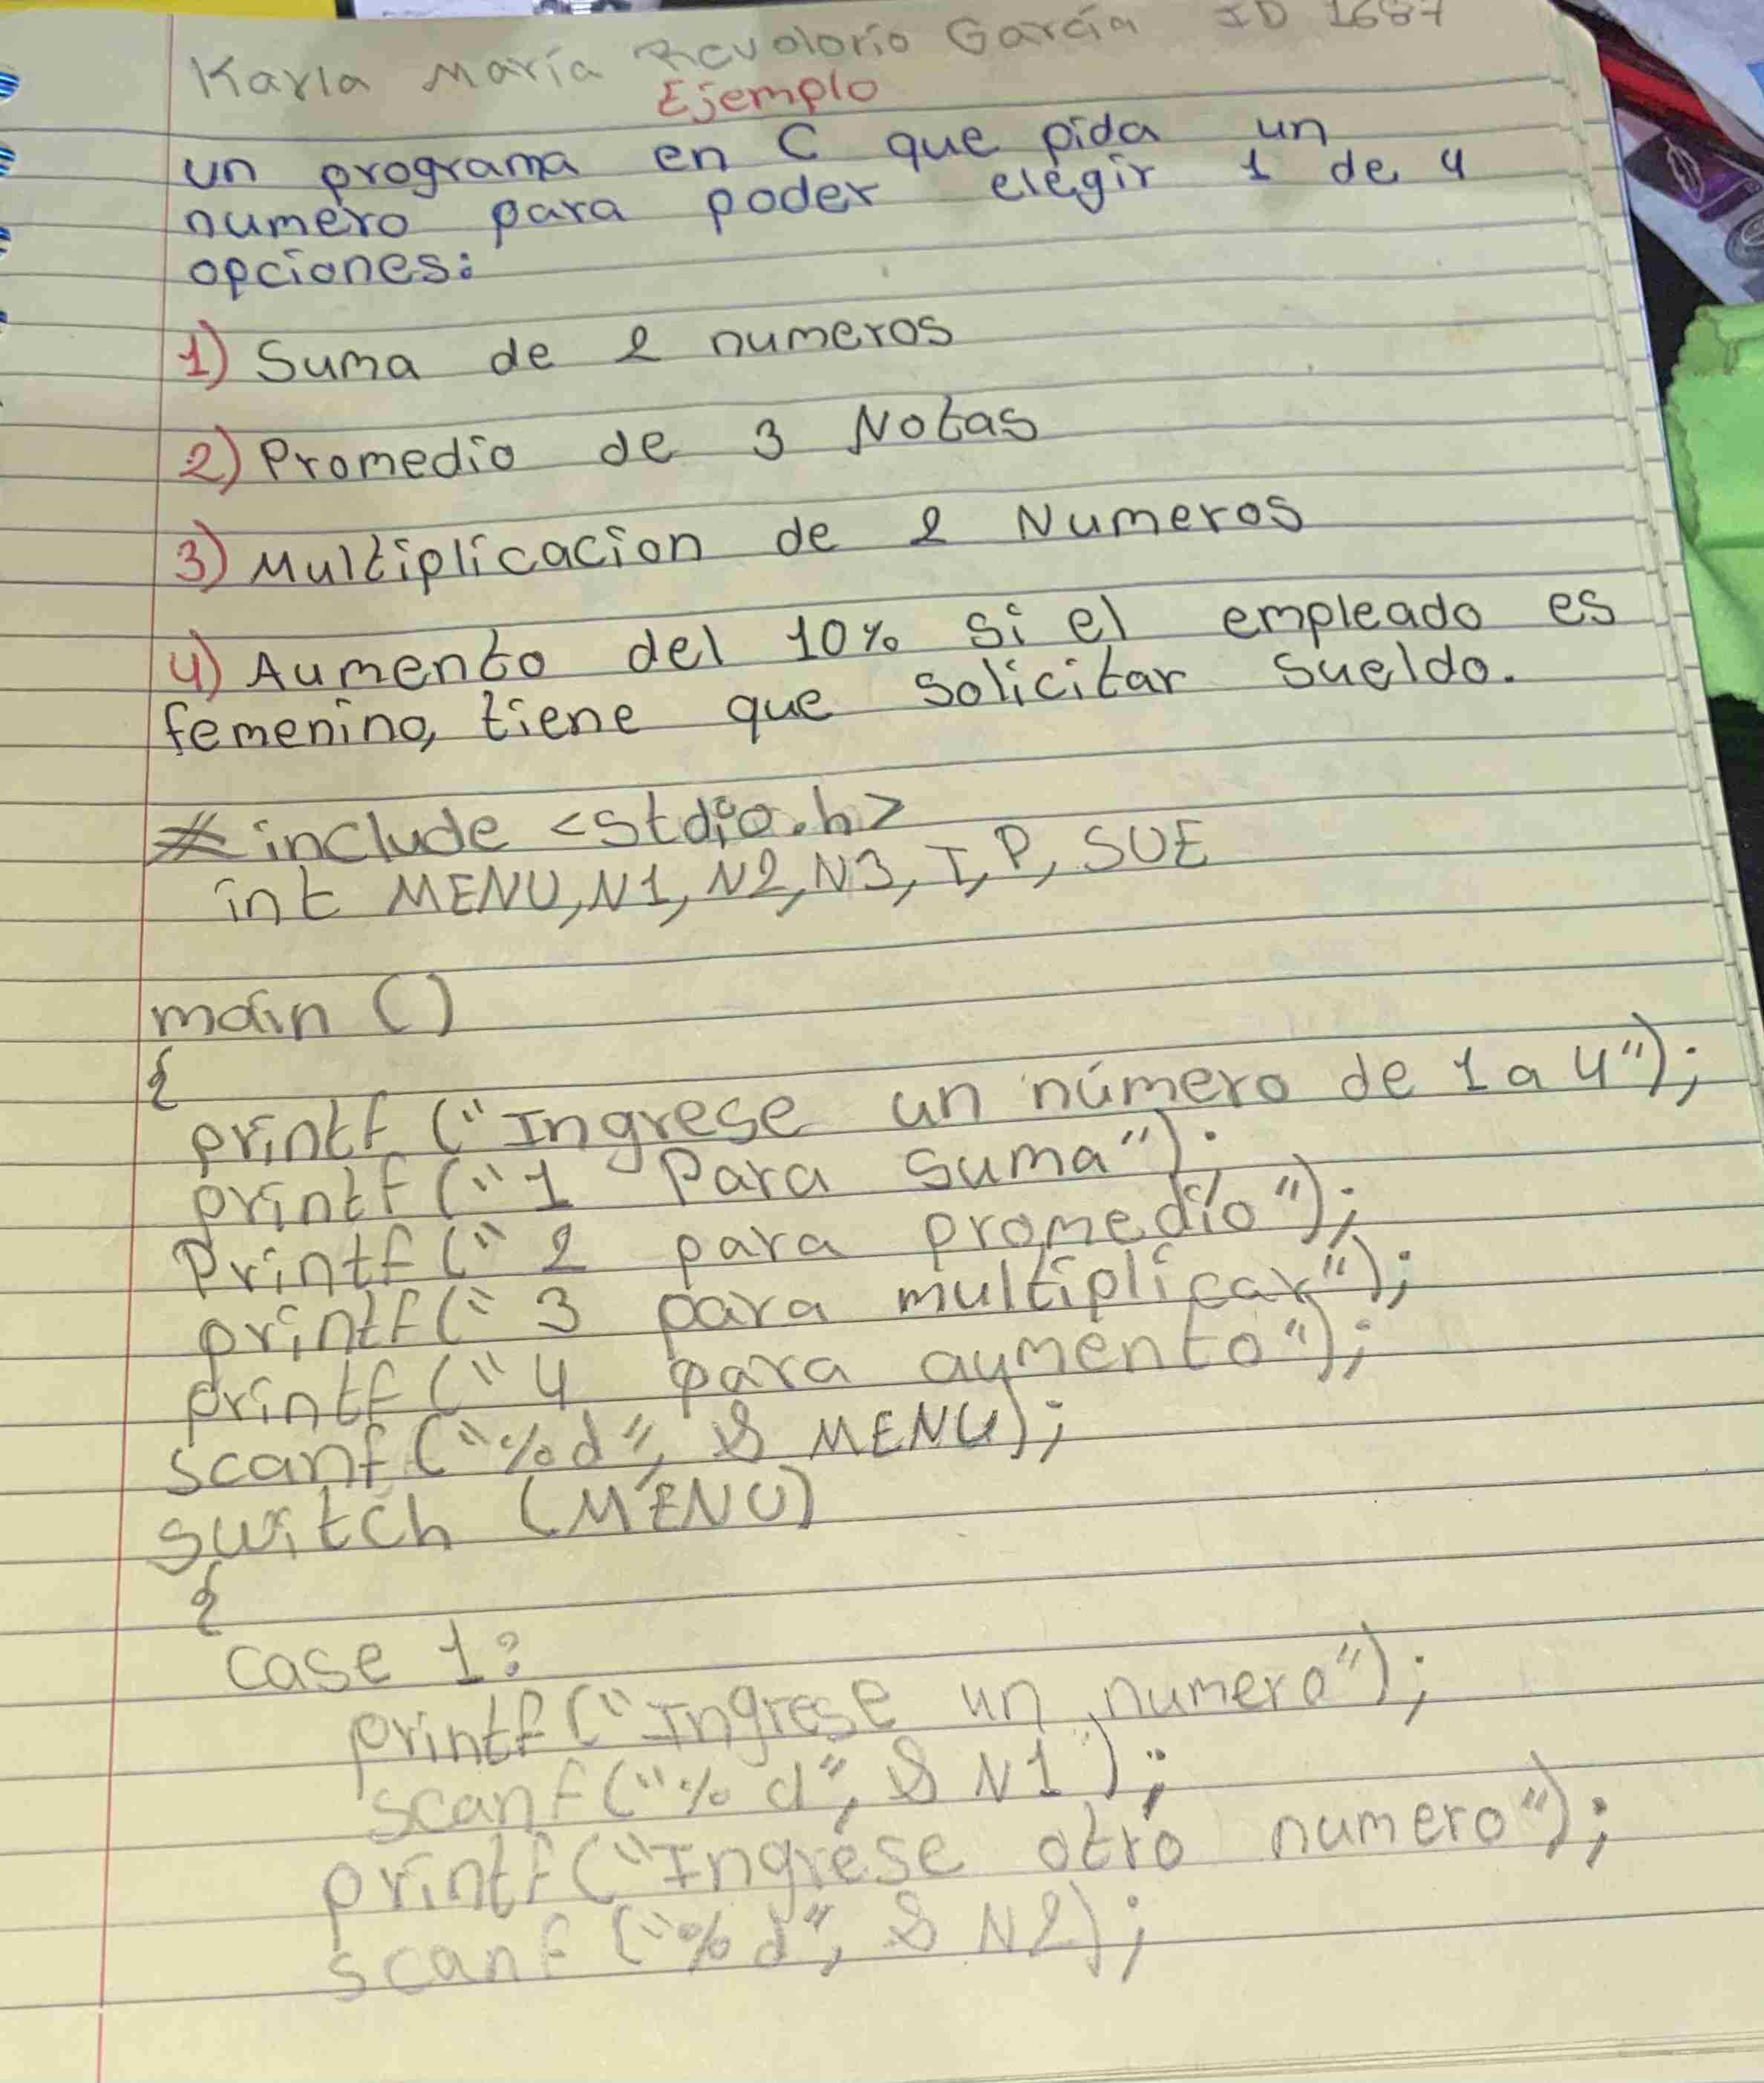 Karla María Revolorio García ID 1687
Ejemplo
un programa en C que pida un
numero para poder elegir 1 de 4
opciones:
1) Suma de 2 numeros
2) Promedio de 3 Notas
3) Multiplicacion de 2 Numeros
4) Aumento del 10% si el empleado es
femenino, tiene que solicitar sueldo.
# include <stdio.h>
int MENU, N1, N2, N3, T, P, SUE
main ()
{
printf ("Ingrese un número de 1 a 4");
printf ("1 Para suma");
Printf (" 2 para promedio");
printf (" 3 para multiplicar");
printf (" 4 para aumento");
scanf ("%d", & MENU);
switch (MENU)
{
case 1:
printf ("Ingrese un numero");
scanf ("%d", & N1);
printf ("Ingrese otro numero");
scanf ("%d", & N2);